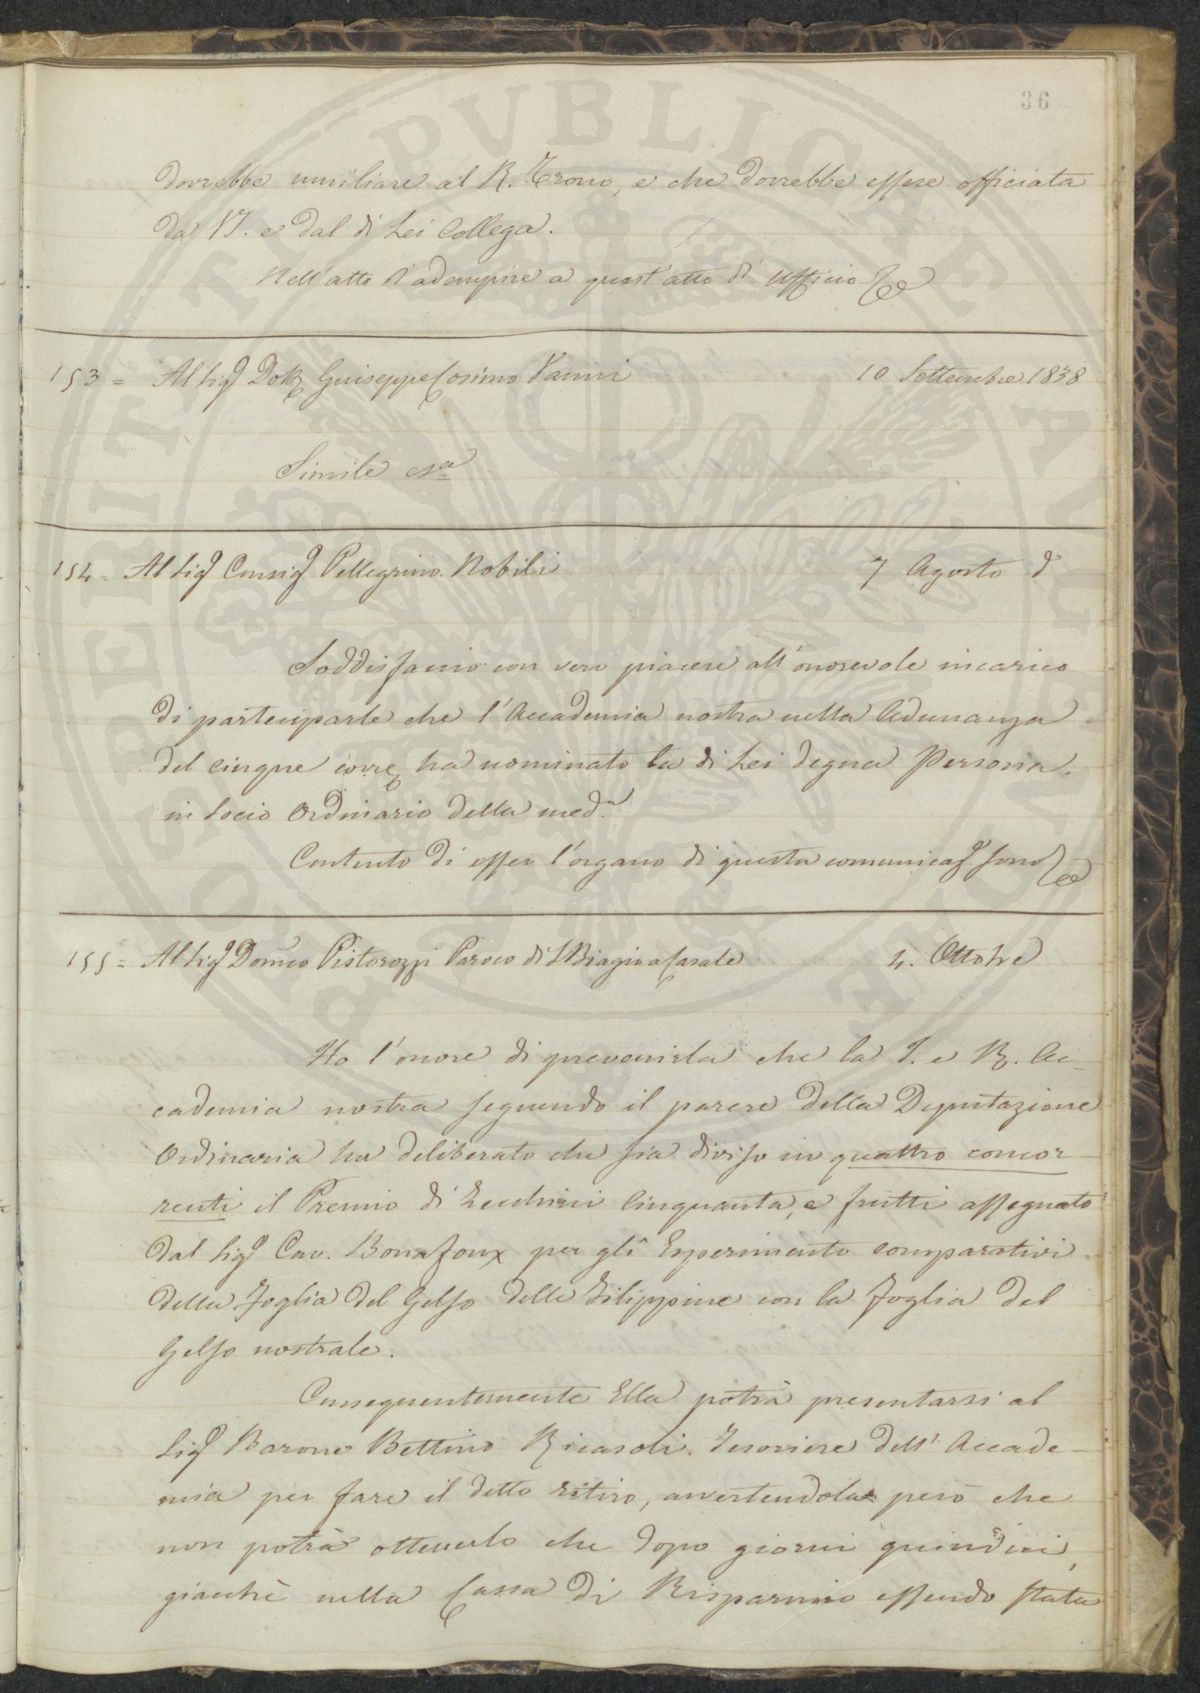 36
dovrebbe umiliare al R. Trono, e che dovrebbe essere officiata
da VS. e dal di Lei Collega.
Nell'atto d'adempire a quest'atto di Ufficio
153 = Al Sig.r Dott. Giuseppe Cosimo Vanni 10 Settembre 1838
Simile
154 = Al Sig.r Consig.r Pellegrino Nobili 7 Agosto d.o
Soddisfaccio con vero piacere all'onorevole incarico
di parteciparle che l'Accademia nostra nella Adunanza
del cinque corr.e ha nominato la di Lei degna Persona
in Socio Ordinario della med.a
Contento di esser l'organo di questa comunicaz.e sono
155 = Al Sig.r Dom.co Pistorozzi Paroco di S. Biagio a Casale 4. Ottobre
Ho l'onore di prevenirla che la I. e R. Ac-
cademia nostra seguendo il parere della Deputazione
Ordinaria ha deliberato che sia diviso in quattro concor-
renti il Premio di Zecchini Cinquanta, e frutti assegnato
dal Sig.r Cav. Bonafoux per gli Esperimento comparativi
della Foglia del Gelso delle Filippine con la Foglia del
Gelso nostrale.
Conseguentemente Ella potrà presentarsi al
Sig.r Barone Bettino Ricasoli Tesoriere dell'Accade-
mia per fare il detto ritiro, avvertendola però che
non potrà ottenerlo che dopo giorni quindici,
giacchè nella Cassa di Risparmio essendo stata
PVBLICAE
PROSPERITATI